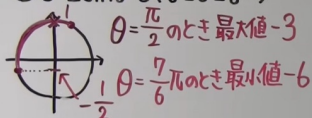 1
θ=π/2のとき最大値-3
-1/2
θ=7/6πのとき最小値-6